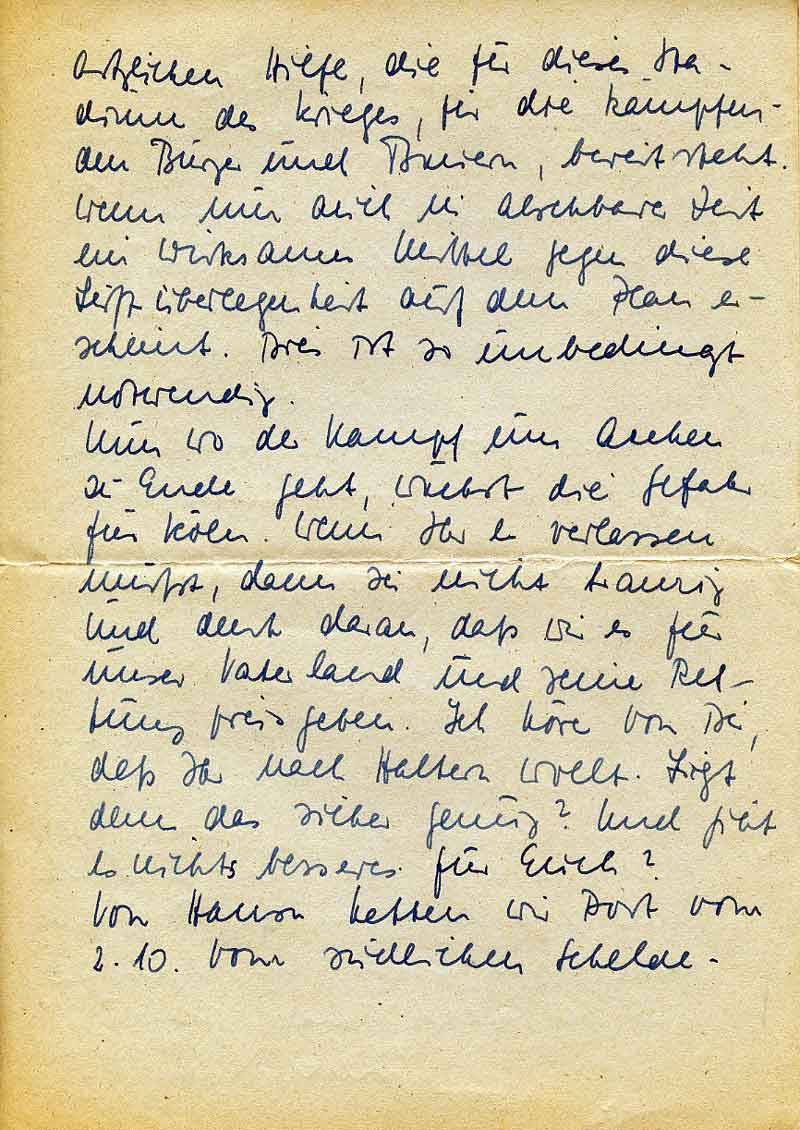 ärztlichen Hilfe, die für dieses Sta-
dium des Krieges, für die kämpfen-
den Bürger und Bauern, bereit steht.
Wenn nur auch in absehbarer Zeit
ein wirksames Mittel gegen diese
Luftüberlegenheit auf dem Plan er-
scheint. Dies ist so unbedingt
notwendig.
Nun wo der Kampf um Aachen
zu Ende geht, wächst die Gefahr
für Köln. Wenn Ihr es verlassen
müßt, dann sei nicht traurig
und denk daran, daß wir es für
unser Vaterland und seine Ret-
tung preisgeben. Ich höre von Dir,
daß Ihr nach Haltern wollt. Liegt
denn das sicher genug? Und gibt
es nichts besseres für Euch?
Von hatten wir Post vom
2.10. von südlichen Schelde.